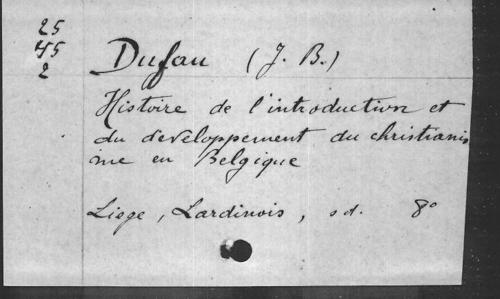 25
45
2
Dufau (J. B.)
Histoire de l'introduction et
du developpement du christianis
me en Belgique
Liege, Lardinois, sd. 8º